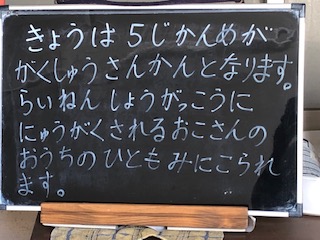 きょうは５じかんめが
がくしゅうさんかんとなります。
らいねんしょうがっこうに
にゅうがくされるおこさんの
おうちのひともみにこられ
ます。